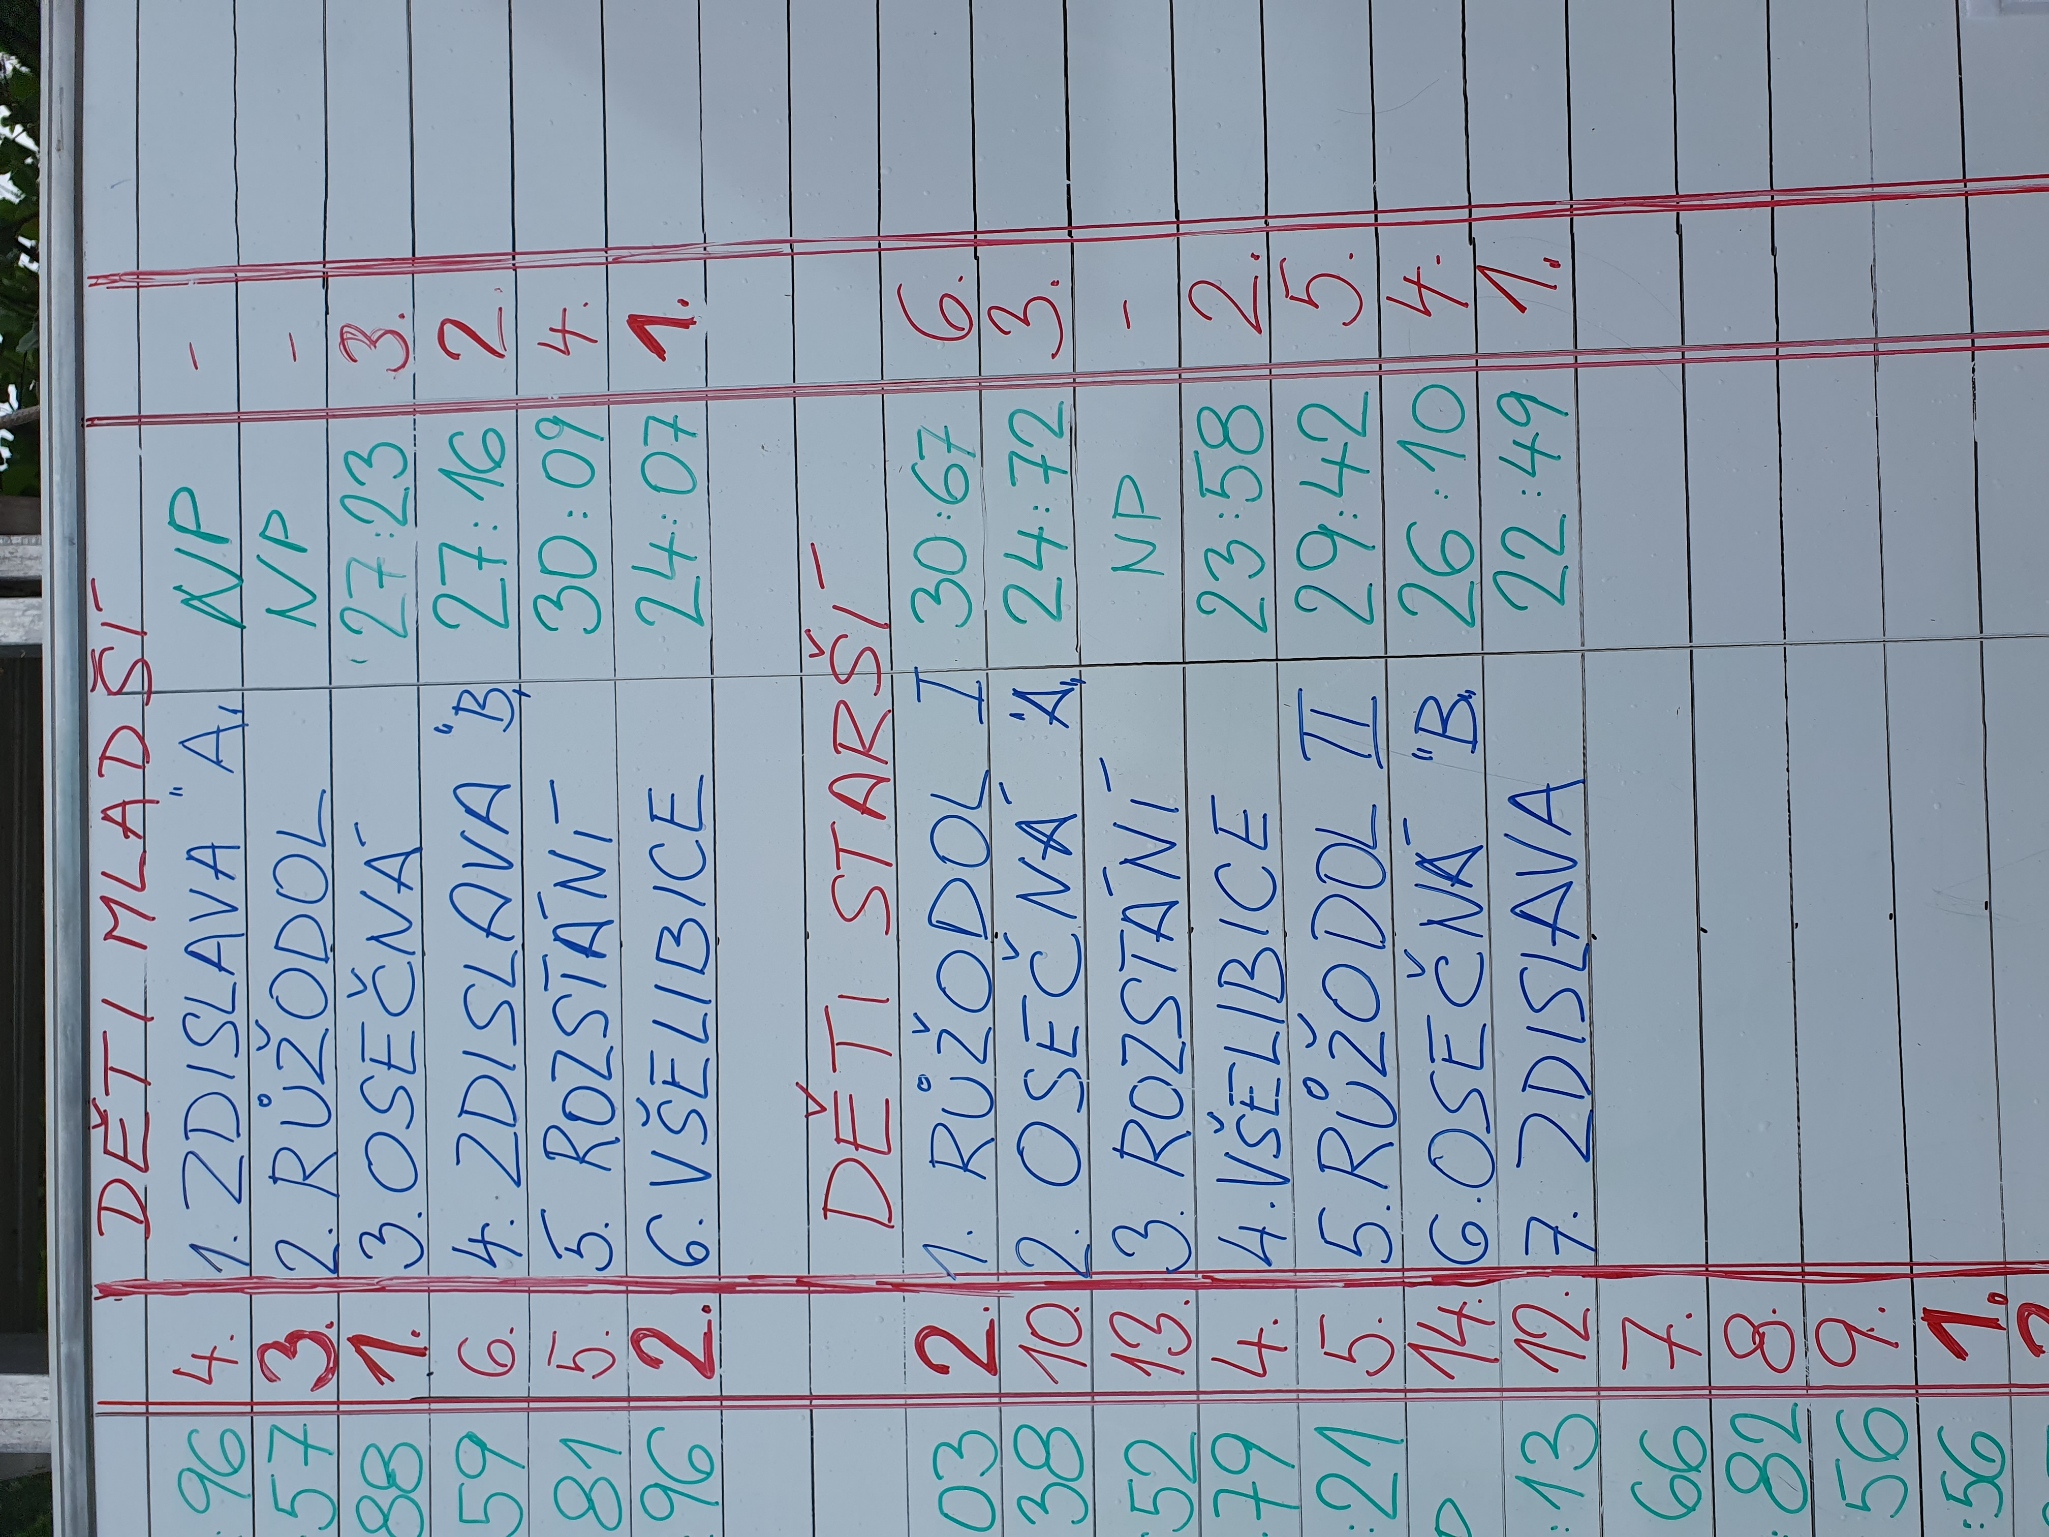 DĚTI MLADŠÍ
96 4. 1. ZDISLAVA "A" NP -
57 3. 2. RŮŽODOL NP -
88 1. 3. OSEČNÁ 27:23 3.
59 6. 4. ZDISLAVA "B" 27:16 2.
81 5. 5. ROZSTÁNÍ 30:09 4.
96 2. 6. VŠELIBICE 24:07 1.
DĚTI STARŠÍ
03 2. 1. RŮŽODOL I 30:67 6.
38 10. 2. OSEČNÁ "A" 24:72 3.
:52 13. 3. ROZSTÁNÍ NP -
:79 4. 4. VŠELIBICE 23:58 2.
:21 5. 5. RŮŽODOL II 29:42 5.
14. 6. OSEČNÁ "B" 26:10 4.
:13 12. 7. ZDISLAVA 22:49 1.
66 7.
:82 8.
56 9.
:56 1.